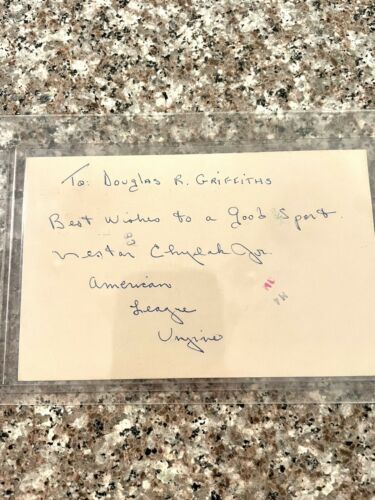 To: Douglas R. Griffiths
Best Wishes to a good sport.
Nestor Chylak Jr.
American
League
Umpire